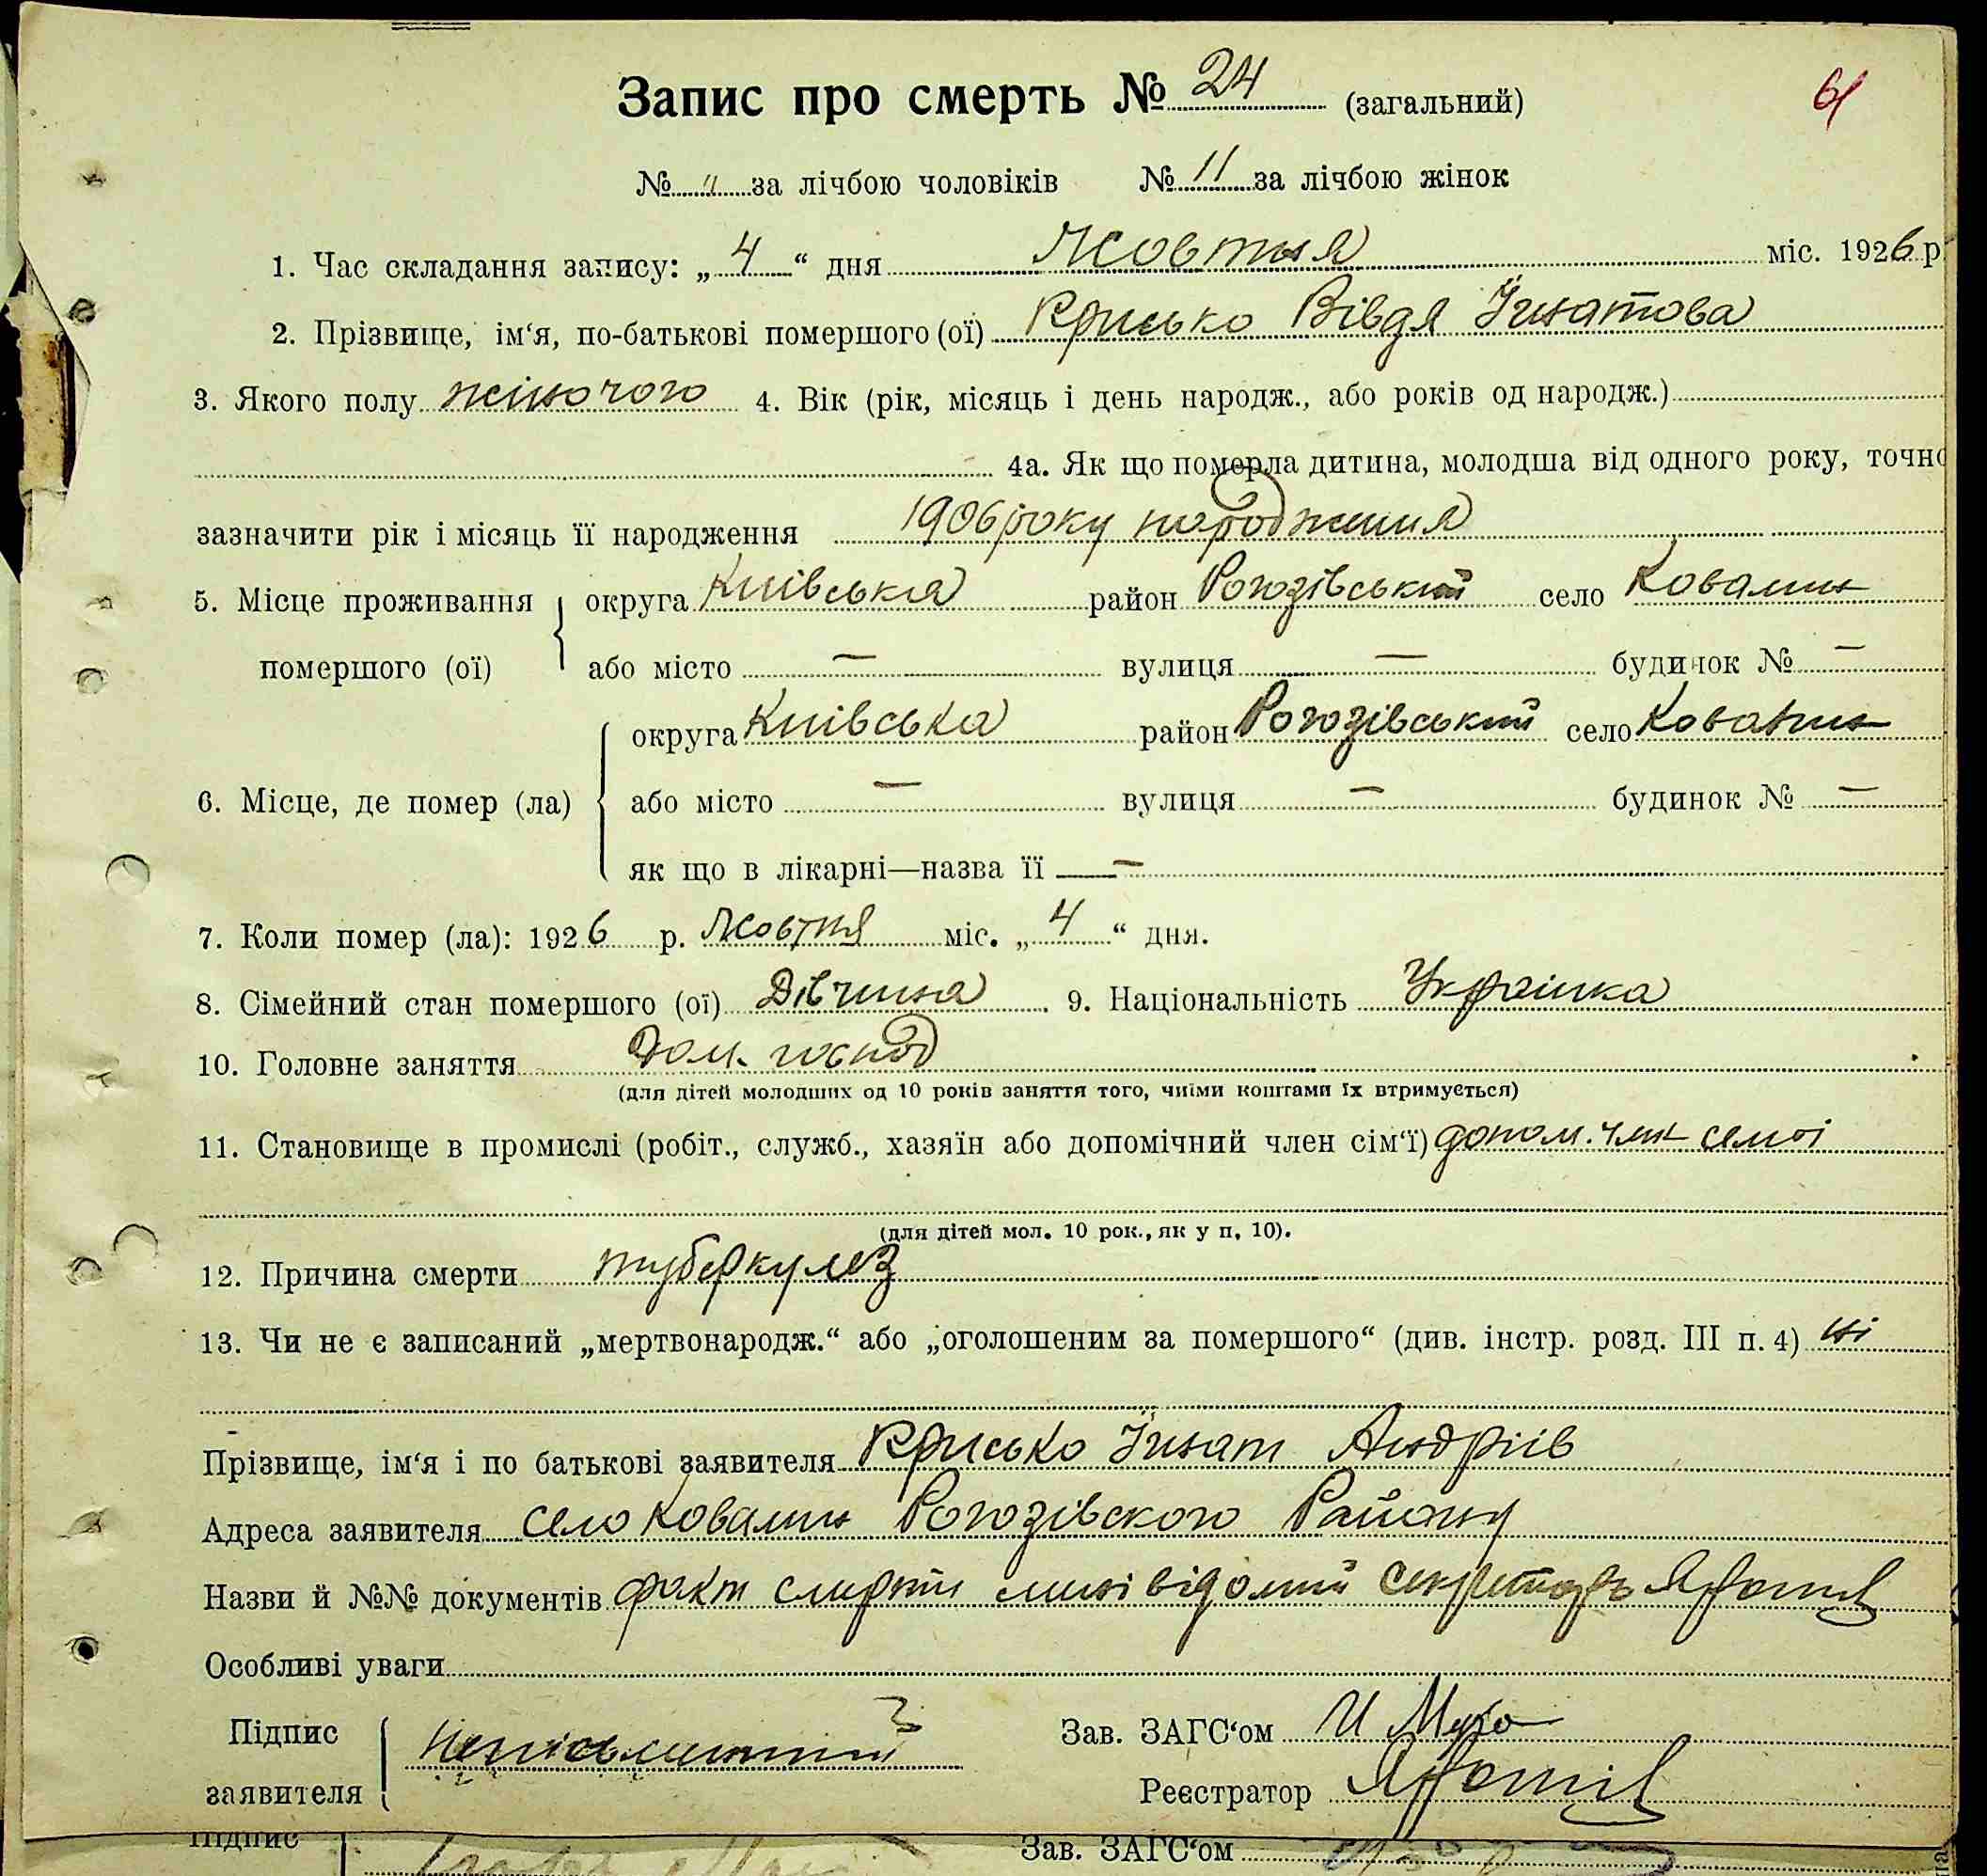 Запис про смерть № 24 (загальний)
61
№ " за лічбою чоловіків № 11 за лічбою жінок
1. Час складання запису: „ 4 “ дня Жовтня міс. 1926 р.
2. Прізвище, ім‘я, по-батькові помершого (ої) Крисько Вівдя Їгнатова
3. Якого полу жіночого 4. Вік (рік, місяць і день народж., або років од народж.)
4а. Як що померла дитина, молодша від одного року, точно
зазначити рік і місяць її народження 1906 року народження
5. Місце проживання округа Київська район Рогозівський село Ковалин
помершого (ої) або місто — вулиця — будинок № —
округа Київська район Рогозівський село Ковалин
6. Місце, де помер (ла) або місто — вулиця — будинок № —
як що в лікарні—назва її —
7. Коли помер (ла): 1926 р. Жовтня міс. „ 4 “ дня.
8. Сімейний стан помершого (ої) Дівчина 9. Національність Українка
10. Головне заняття Дом. господ
(для дітей молодших од 10 років заняття того, чиїми коштами їх втримується)
11. Становище в промислі (робіт., служб., хазяїн або допомічний член сім‘ї) допом. член семі
(для дітей мол. 10 рок., як у п. 10).
12. Причина смерти туберкулез
13. Чи не є записаний „мертвонародж.“ або „оголошеним за помершого“ (див. інстр. розд. III п. 4) ні
Прізвище, ім‘я і по батькові заявителя Крисько Їгнат Андріів
Адреса заявителя село Ковалин Рогозівского Району
Назви й №№ документів факт смерти мині відомий секретарь
Особливі уваги
Підпис заявителя Неписьменний
Зав. ЗАГС‘ом И Муха
Реєстратор
Підпис Зав. ЗАГС‘ом